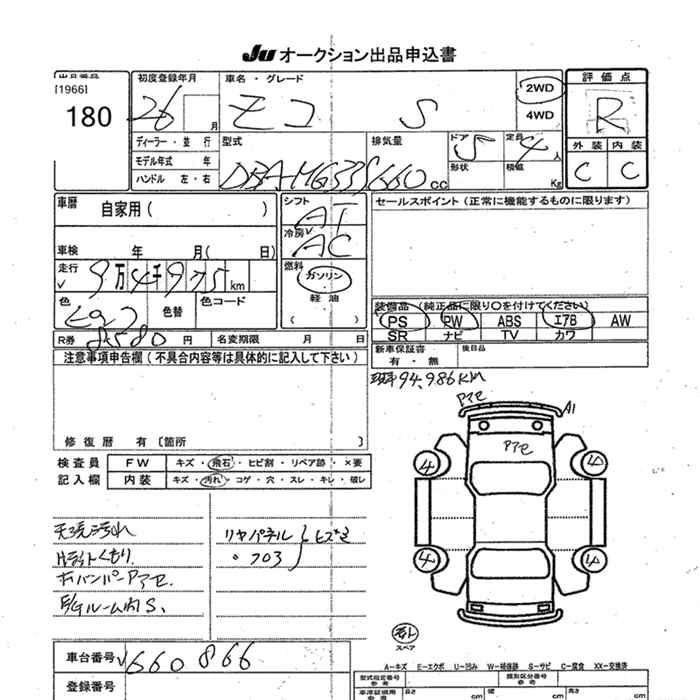 JU オークション出品申込書
出品番号
[1966]
180
初度登録年月
26 月
車名・グレード
モコ S
2WD
4WD
評価点
R
外装 内装
C C
ディーラー・並行
モデル年式 年
ハンドル 左・右
型式
DBA-MG33S
排気量
660cc
ドア
5
形状
定員
4人
積載
Kg
車歴 自家用( )
車検 年 月( 日)
走行
9万4千975km
色
色替
色コード
R券 8580円
名変期限 月 日
シフト
AT
冷房
AC
燃料
ガソリン
・
軽油
( )
セールスポイント(正常に機能するものに限ります)
装備品(純正品に限り○を付けてください)
PS PW ABS エアB AW
SR ナビ TV カワ
新車保証書
有・無
後日品
注意事項申告欄(不具合内容等は具体的に記入して下さい)
94,986KM
修復歴 有〔箇所 〕
検査員
記入欄
FW キズ・飛石・ヒビ割・リペア跡・×要
内装 キズ・汚れ・コゲ・穴・スレ・キレ・破レ
アセ
A1
アセ
4 4
4 4
天張汚れ
Hライトくもり.
ルーム内S.
リヤパネル
・フロア
ヒズミ
スペア
車台番号 660866
登録番号
A…キズ E…エクボ U…凹み W…補修跡 S…サビ C…腐食 XX…交換済
型式指定番号
参考
類別区分番号
参考
長さ cm
幅 cm
高さ cm